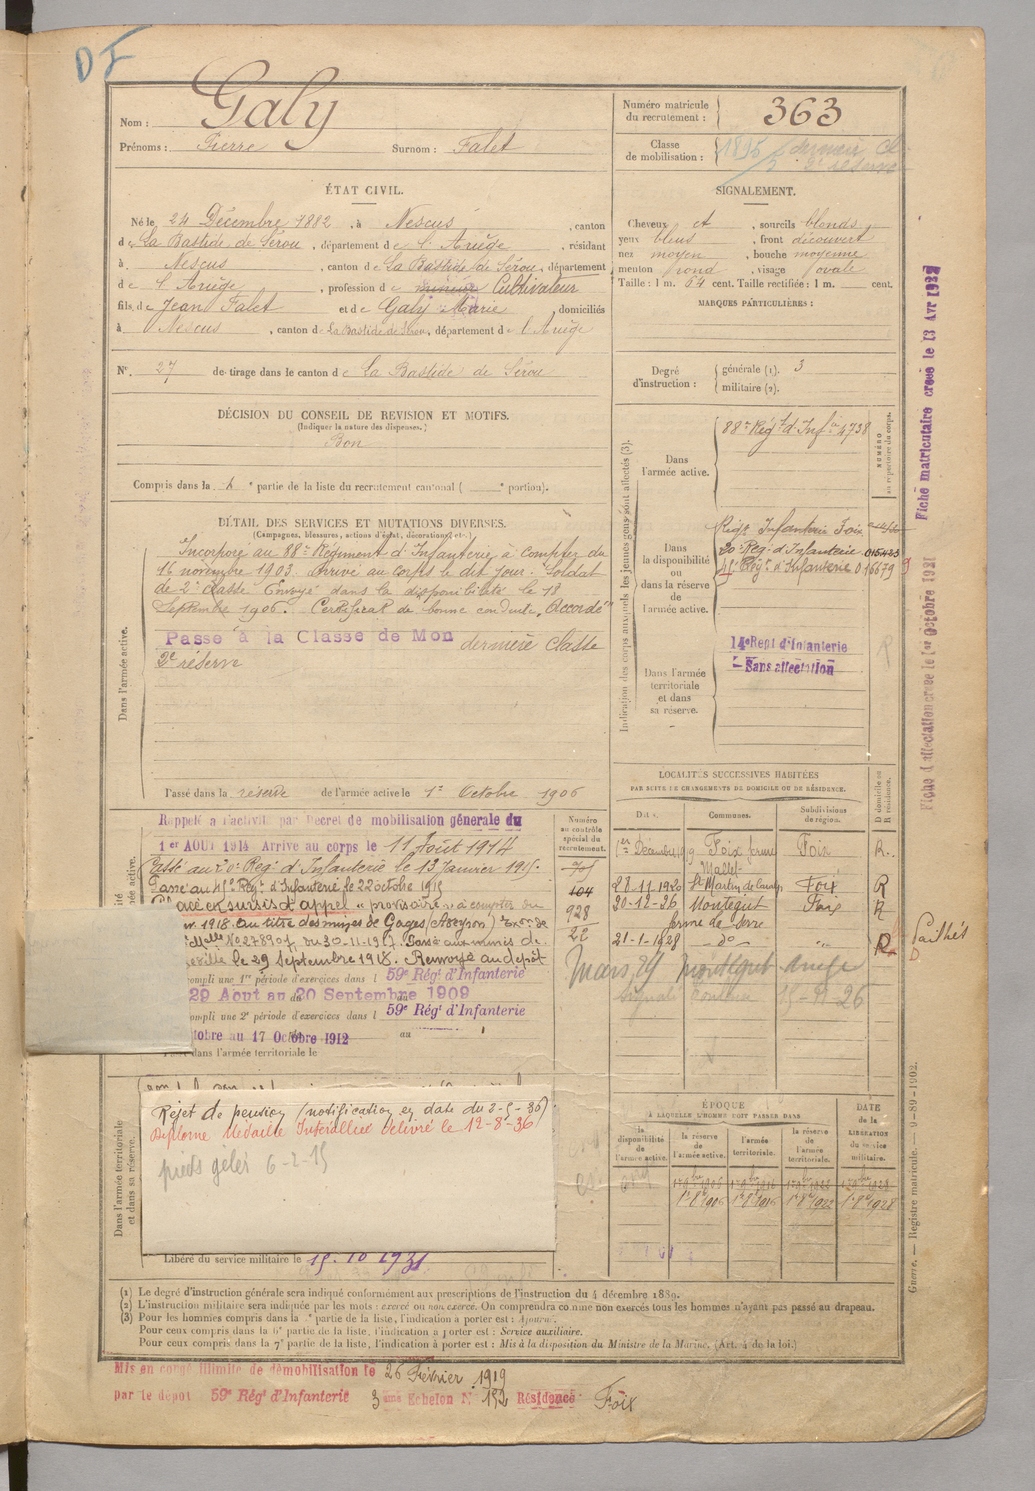 DF
Nom : Galy
Prénoms : Pierre Surnom : Falet
Numéro matricule du recrutement : 363
Classe de mobilisation : 1895
2e réserve
ÉTAT CIVIL.
Né le 24 Décembre 1882, à Nescus, canton
de La Bastide de Sérou, département de l'Ariège, résidant
à Nescus, canton de La Bastide de Sérou, département
de l'Ariège, profession de mineur Cultivateur
fils de Jean Falet et de Galy Marie, domiciliés
à Nescus, canton de La Bastide de Sérou, département de l'Ariège
N°. 27 de tirage dans le canton de La Bastide de Sérou
SIGNALEMENT.
Cheveux et, sourcils blonds
yeux bleus, front découvert
nez moyen, bouche moyenne
menton rond, visage ovale
Taille : 1 m. 64 cent. Taille rectifiée : 1 m. cent.
MARQUES PARTICULIÈRES :
Degré d'instruction : générale (1). 3
militaire (2).
DÉCISION DU CONSEIL DE REVISION ET MOTIFS.
(Indiquer la nature des dispenses.)
Bon
Compris dans la e partie de la liste du recrutement cantonal ( e portion).
DÉTAIL DES SERVICES ET MUTATIONS DIVERSES.
(Campagnes, blessures, actions d'éclat, décorations, etc.)
Dans l'armée active.
Incorporé au 88e Régiment d'Infanterie à compter du
16 novembre 1903. Arrivé au corps le dit jour. Soldat
de 2e classe. Envoyé dans la disponibilité le 18
Septembre 1906. Certificat de bonne conduite "Accordé"
Passé à la Classe de Mon dernière classe
2e réserve
Passé dans la réserve de l'armée active le 1er Octobre 1906
Indication des corps auxquels les jeunes gens sont affectés (3).
NUMÉRO au répertoire du corps.
Dans l'armée active.
88e Régt d'Infie 4738
Dans la disponibilité ou dans la réserve de l'armée active.
Régt Infanterie Foix
20e Rég. d'Infanterie 015423
Régt d'Infanterie 016679
Dans l'armée territoriale et dans sa réserve.
14e Regt d'Infanterie
Sans affectation
R
Fiche matriculaire creée le 13 Avr
Fiche d'affectation creée le 1er Octobre 1921
Rappelé à l'activité par Décret de mobilisation générale du
1er AOUT 1914 Arrivé au corps le 11 Août 1914
Passé au 20e Régt d'Infanterie le 13 Janvier 1915.
Passé au Régt d'Infanterie le 22 octobre 1915
Placé en sursis d'appel "provisoire" à compter du
1918 au titre des mines de Gages (Aveyron)
No 27890 du 30-11-1917. Passé aux mines de
le 29 Septembre 1918. Renvoyé au dépôt
ompli une 1re période d'exercices dans l 59e Régt d'Infanterie
29 Aout au 20 Septembre 1909
ompli une 2e période d'exercices dans l 59e Régt d'Infanterie
tobre au 17 Octobre 1912 au
dans l'armée territoriale le
Numéro au contrôle spécial du recrutement.
104
928
22
LOCALITÉS SUCCESSIVES HABITÉES
PAR SUITE DE CHANGEMENTS DE DOMICILE OU DE RÉSIDENCE.
Dates. Communes. Subdivisions de région. D domicile ou R résidence.
1er Décembre 1919 Foix ferme Foix R.
28-11-1920 St Martin de Caralp Foix R
30-12-26 Montégut Foix R
ferme de Serre
21-1-1928 - do - " R
Mars 29 Montégut Ariège
Pailhès
D.
Dans l'armée territoriale et dans sa réserve.
Rejet de pension (notification en date du 2-5-36)
Diplôme Médaille Interalliée délivré le 12-8-36
pieds gelés 6-2-15
Libéré du service militaire le 15.10.1931
ÉPOQUE
À LAQUELLE L'HOMME DOIT PASSER DANS
DATE de la LIBÉRATION du service militaire.
la disponibilité de l'armée active.
la réserve de l'armée active.
l'armée territoriale.
la réserve de l'armée territoriale.
1er 8bre 1906 1er 8bre 1916 1er 8bre 1922 1er 8bre 1928
(1) Le degré d'instruction générale sera indiqué conformément aux prescriptions de l'instruction du 4 décembre 1889.
(2) L'instruction militaire sera indiquée par les mots : exercé ou non exercé. On comprendra comme non exercés tous les hommes n'ayant pas passé au drapeau.
(3) Pour les hommes compris dans la e partie de la liste, l'indication à porter est : Ajourné.
Pour ceux compris dans la 6e partie de la liste, l'indication à porter est : Service auxiliaire.
Pour ceux compris dans la 7e partie de la liste, l'indication à porter est : Mis à la disposition du Ministre de la Marine. (Art. 4 de la loi.)
Guerre. — Registre matricule. — 9-89-1902.
Mis en congé illimité de démobilisation le 26 Février 1919
par le dépôt 59e Régt d'Infanterie 3ème Echelon N° 152 Résidence Foix